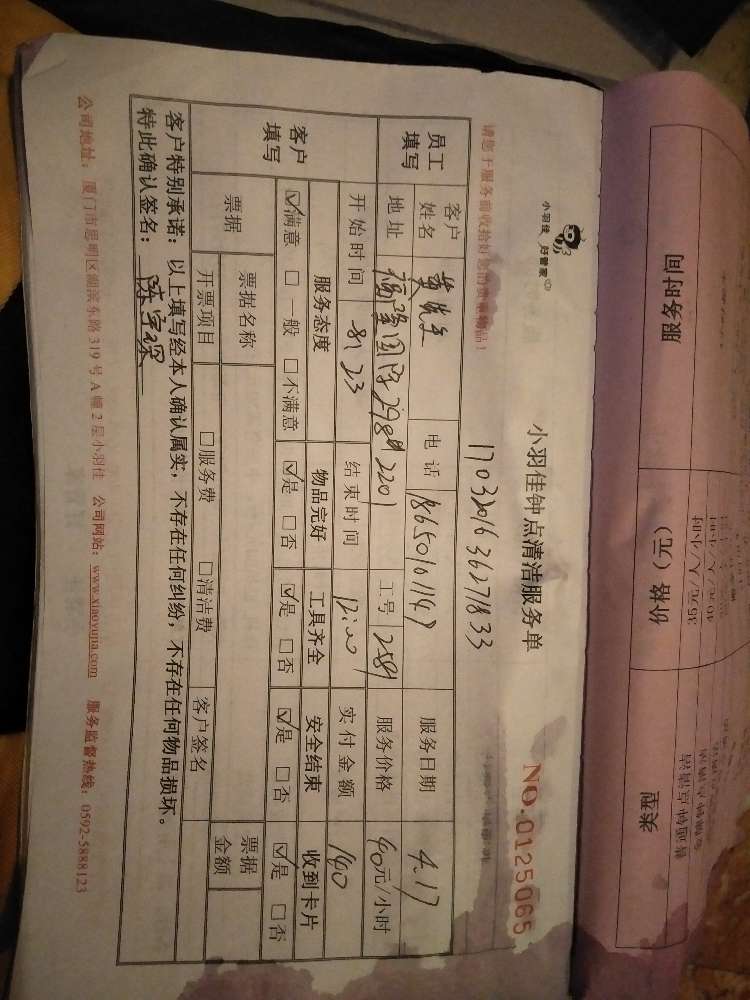 小羽佳 好管家
小羽佳钟点清洁服务单
NO.0125065
1703201636271833
请您于服务前收拾好您的贵重物品!
员工填写
客户姓名 黄先生 电话 18650101147 服务日期 4.17
地址 2984 2201 工号 2584 服务价格 40元/小时
开始时间 8:23 结束时间 12:00 实付金额 140
客户填写
服务态度 物品完好 工具齐全 安全结束 收到卡片
☑满意 □一般 □不满意 ☑是 □否 ☑是 □否 ☑是 □否 ☑是 □否
票据 票据名称 票据金额
开票项目 □服务费 □清洁费 客户签名
客户特别承诺:以上填写经本人确认属实,不存在任何纠纷,不存在任何物品损坏。
特此确认签名:
公司地址:厦门市思明区湖滨东路319号A幢2层小羽佳 公司网站:www.xiaoyujia.com 服务监督热线:0592-5888123
服务时间 价格(元) 类型
35元/人/小时 普通钟点清洁